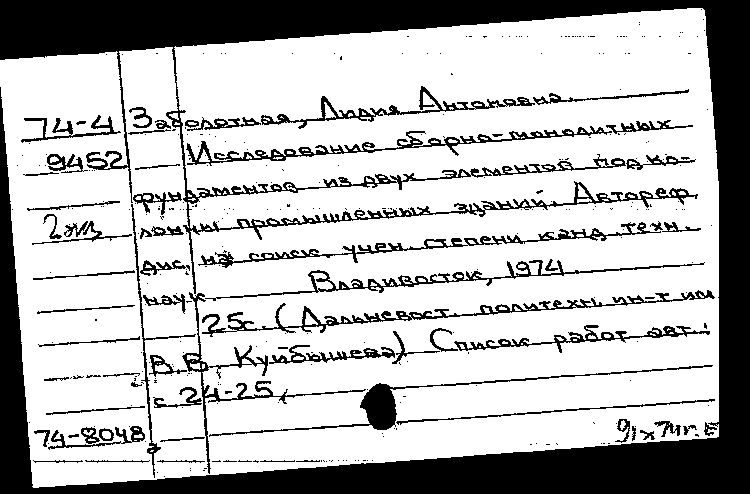 74-4 Заболотная, Лидия Антоновна.
9452 Исследование сборно-монолитных
фундаментов из двух элементов под ко-
2 экз лонны промышленных зданий. Автореф.
дис. на соиск. учен. степени канд. техн.
наук. Владивосток, 1974.
25с. (Дальневост. политехн. ин-т им
В.В. Куйбышева) Список работ авт.:
с 24-25.
74-8048